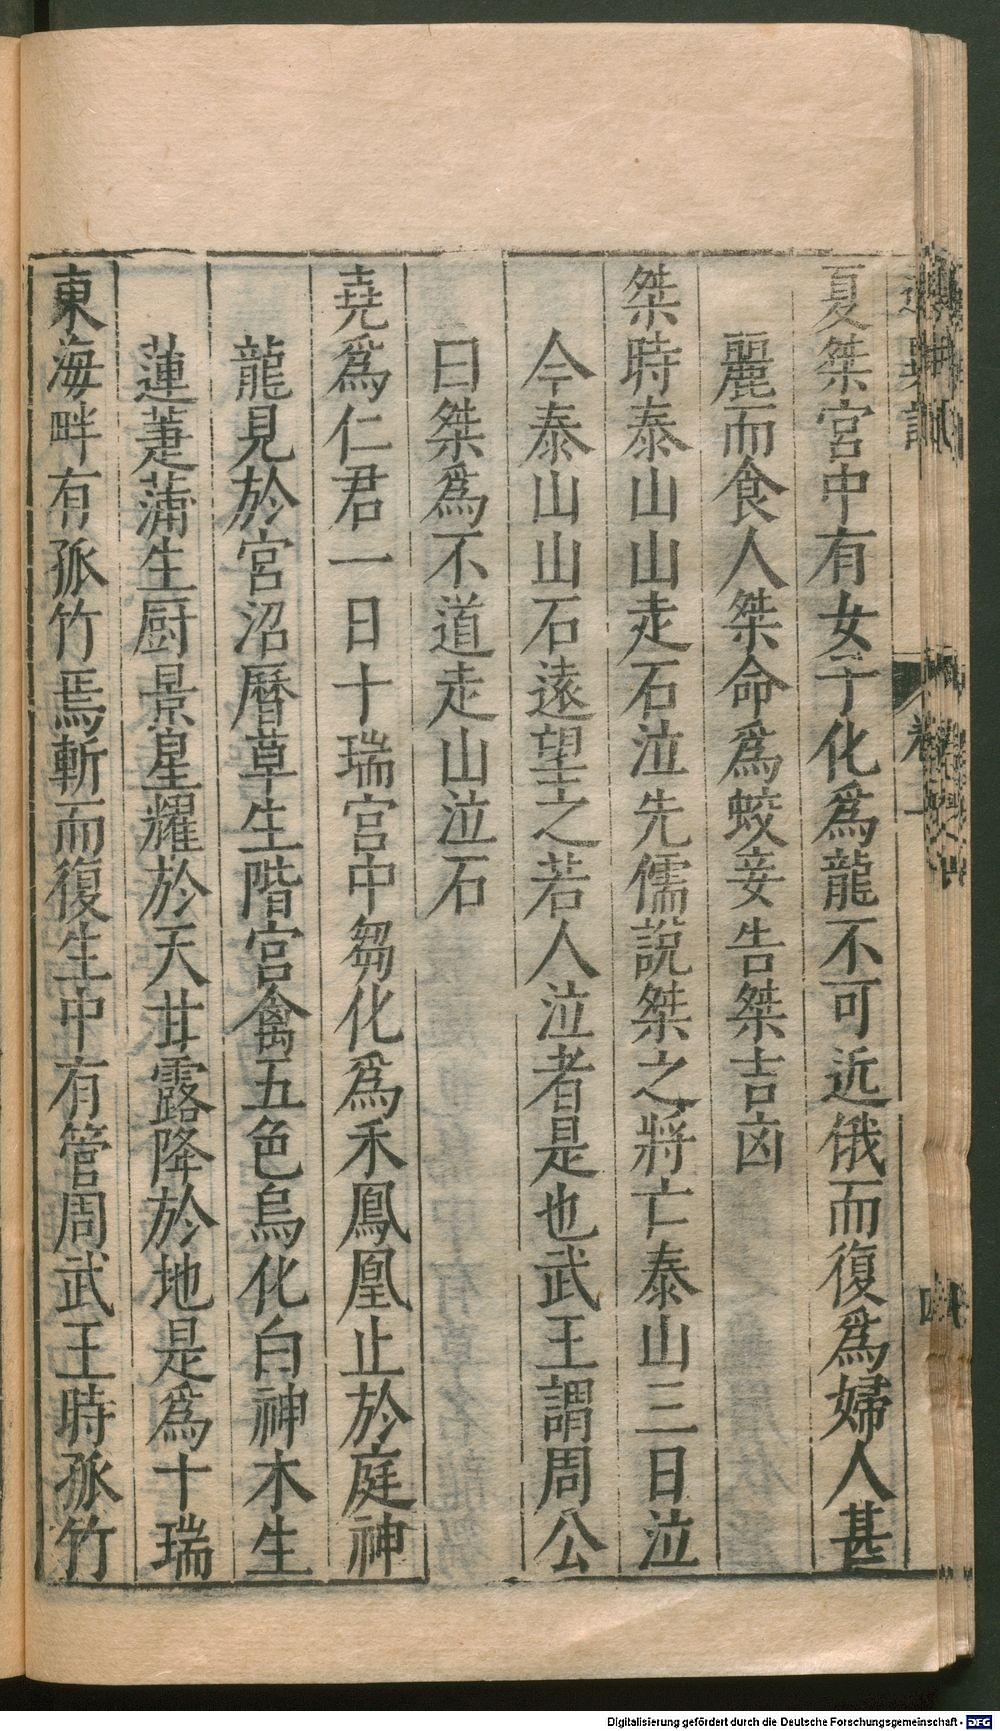 夏桀宮中有女子化為龍不可近俄而復為婦人甚
麗而食人桀命為蛟妾告桀吉凶
桀時泰山山走石泣先儒說桀之將亡泰山三日泣
今泰山山石遠望之若人泣者是也武王謂周公
曰桀為不道走山泣石
堯為仁君一日十瑞宮中芻化為禾鳳凰止於庭神
龍見於宮沼曆草生階宮禽五色烏化白神木生
蓮萐蒲生厨景星耀於天甘露降於地是為十瑞
東海畔有孤竹焉斬而復生中有管周武王時孤竹
卷上
四
Digitalisierung gefördert durch die Deutsche Forschungsgemeinschaft - DFG